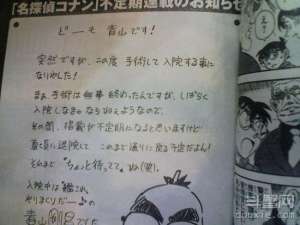 「名探偵コナン」不定期連載のお知らせ
どーも青山です!
突然ですが、この度 手術して入院する事に
なりました!
まぁ 手術は無事 終わったんですが、しばらく
入院しなきゃならないようなので、
その間、掲載が不定期になると思いますけど
夏頃に退院して このまで通りに戻る予定だよん!
それまで "ちょっと待っててね"(笑)。
入院中は 艦これ
やりまくりだー♪の
青山剛昌でした
斗罩网
douxie.com